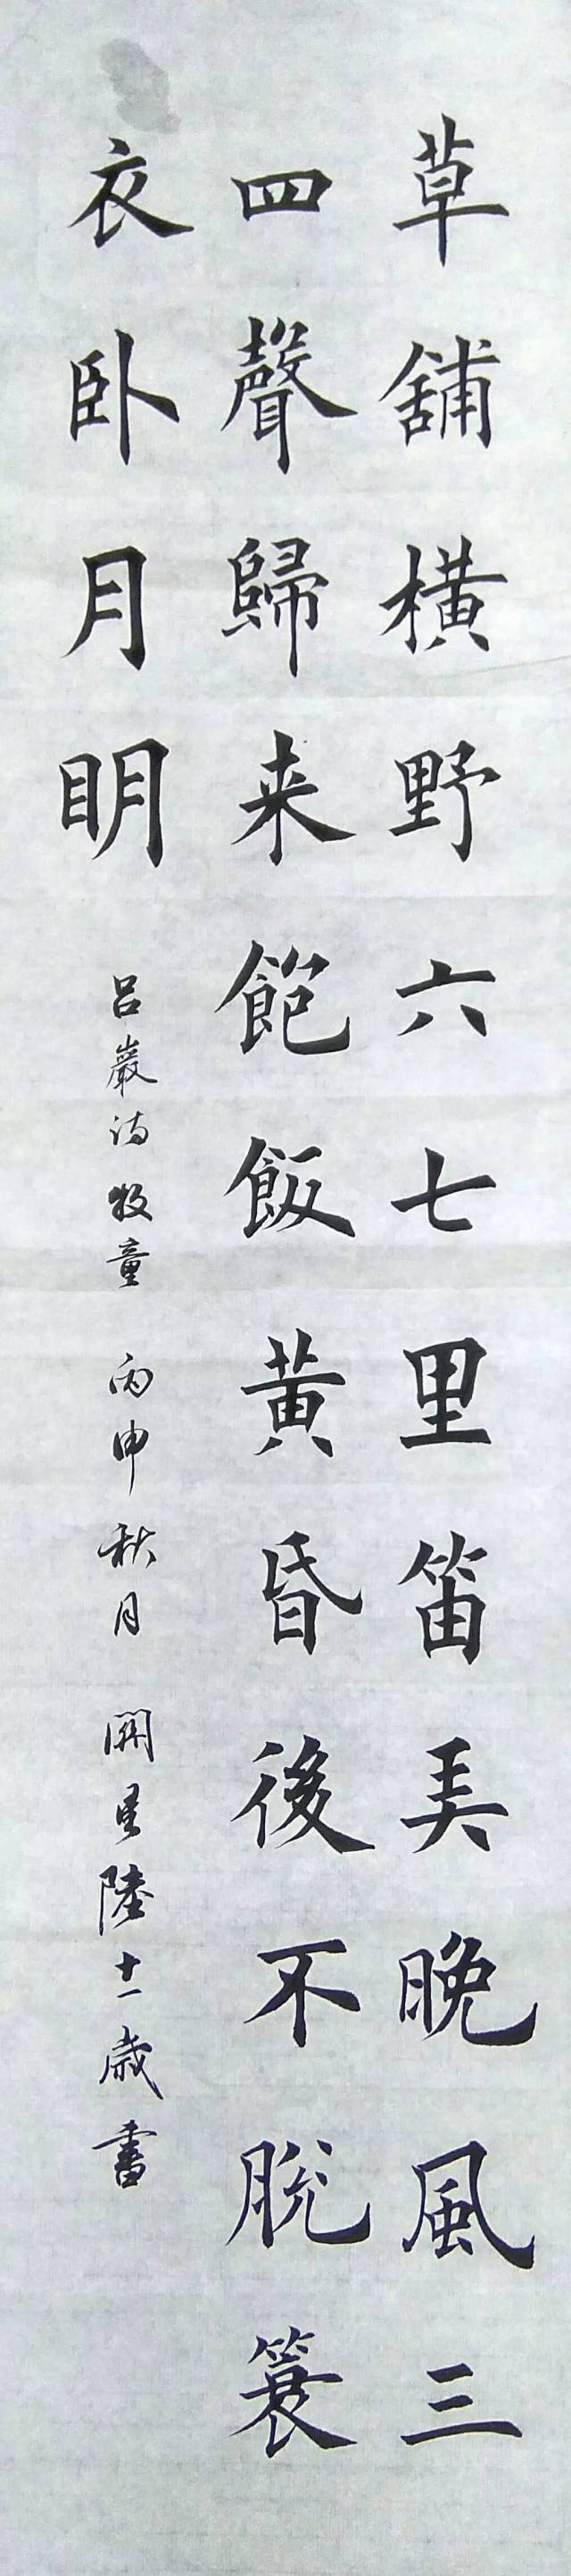 草舖横野六七里笛弄晚風三
四聲歸来飽飯黄昏後不脫簑
衣卧月明
吕巖诗牧童 丙申秋月 開星陸十一歲書